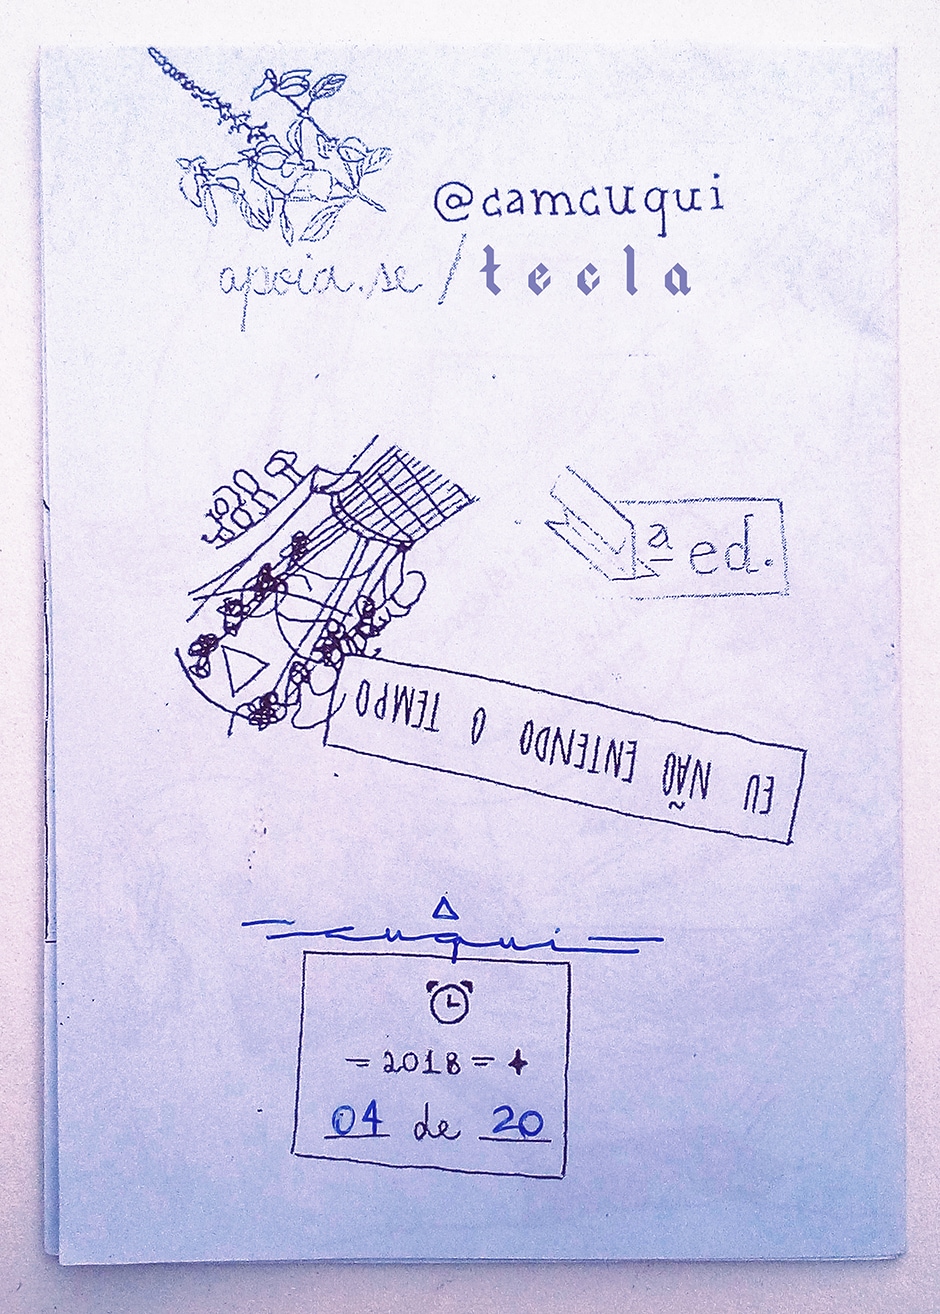 @camcuqui
apoia.se/tecla
1ª ed.
EU NÃO ENTENDO O TEMPO
cuqui
=2018=
04 de 20